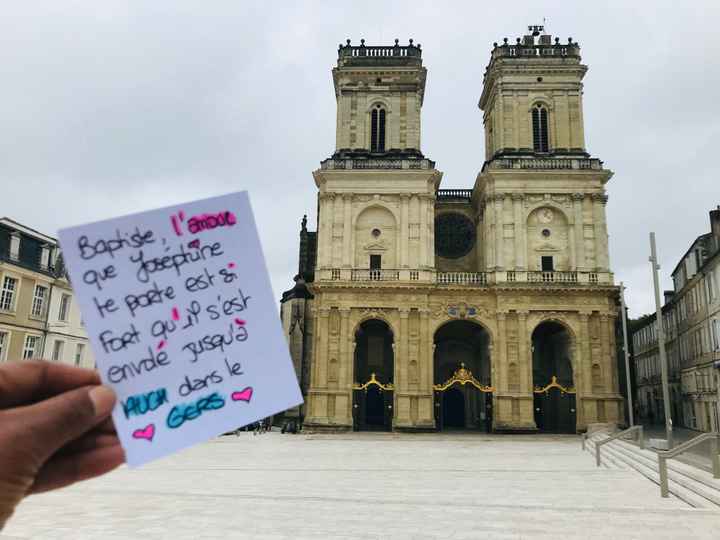 Baptiste, l'amour
que Joséphine
te porte est si
Fort qu'il s'est
envolé jusqu'à
AUCH dans le
GERS